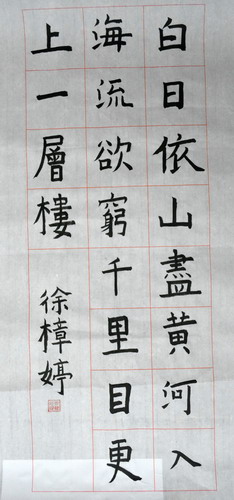 白日依山盡黄河入
海流欲窮千里目更
上一層樓
徐樟婷